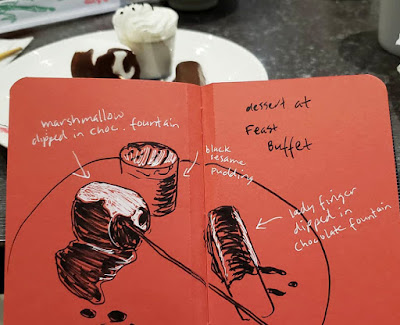 marshmallow
dipped in choc. fountain
black
sesame
pudding
dessert at
Feast
Buffet
lady finger
dipped in
chocolate fountain